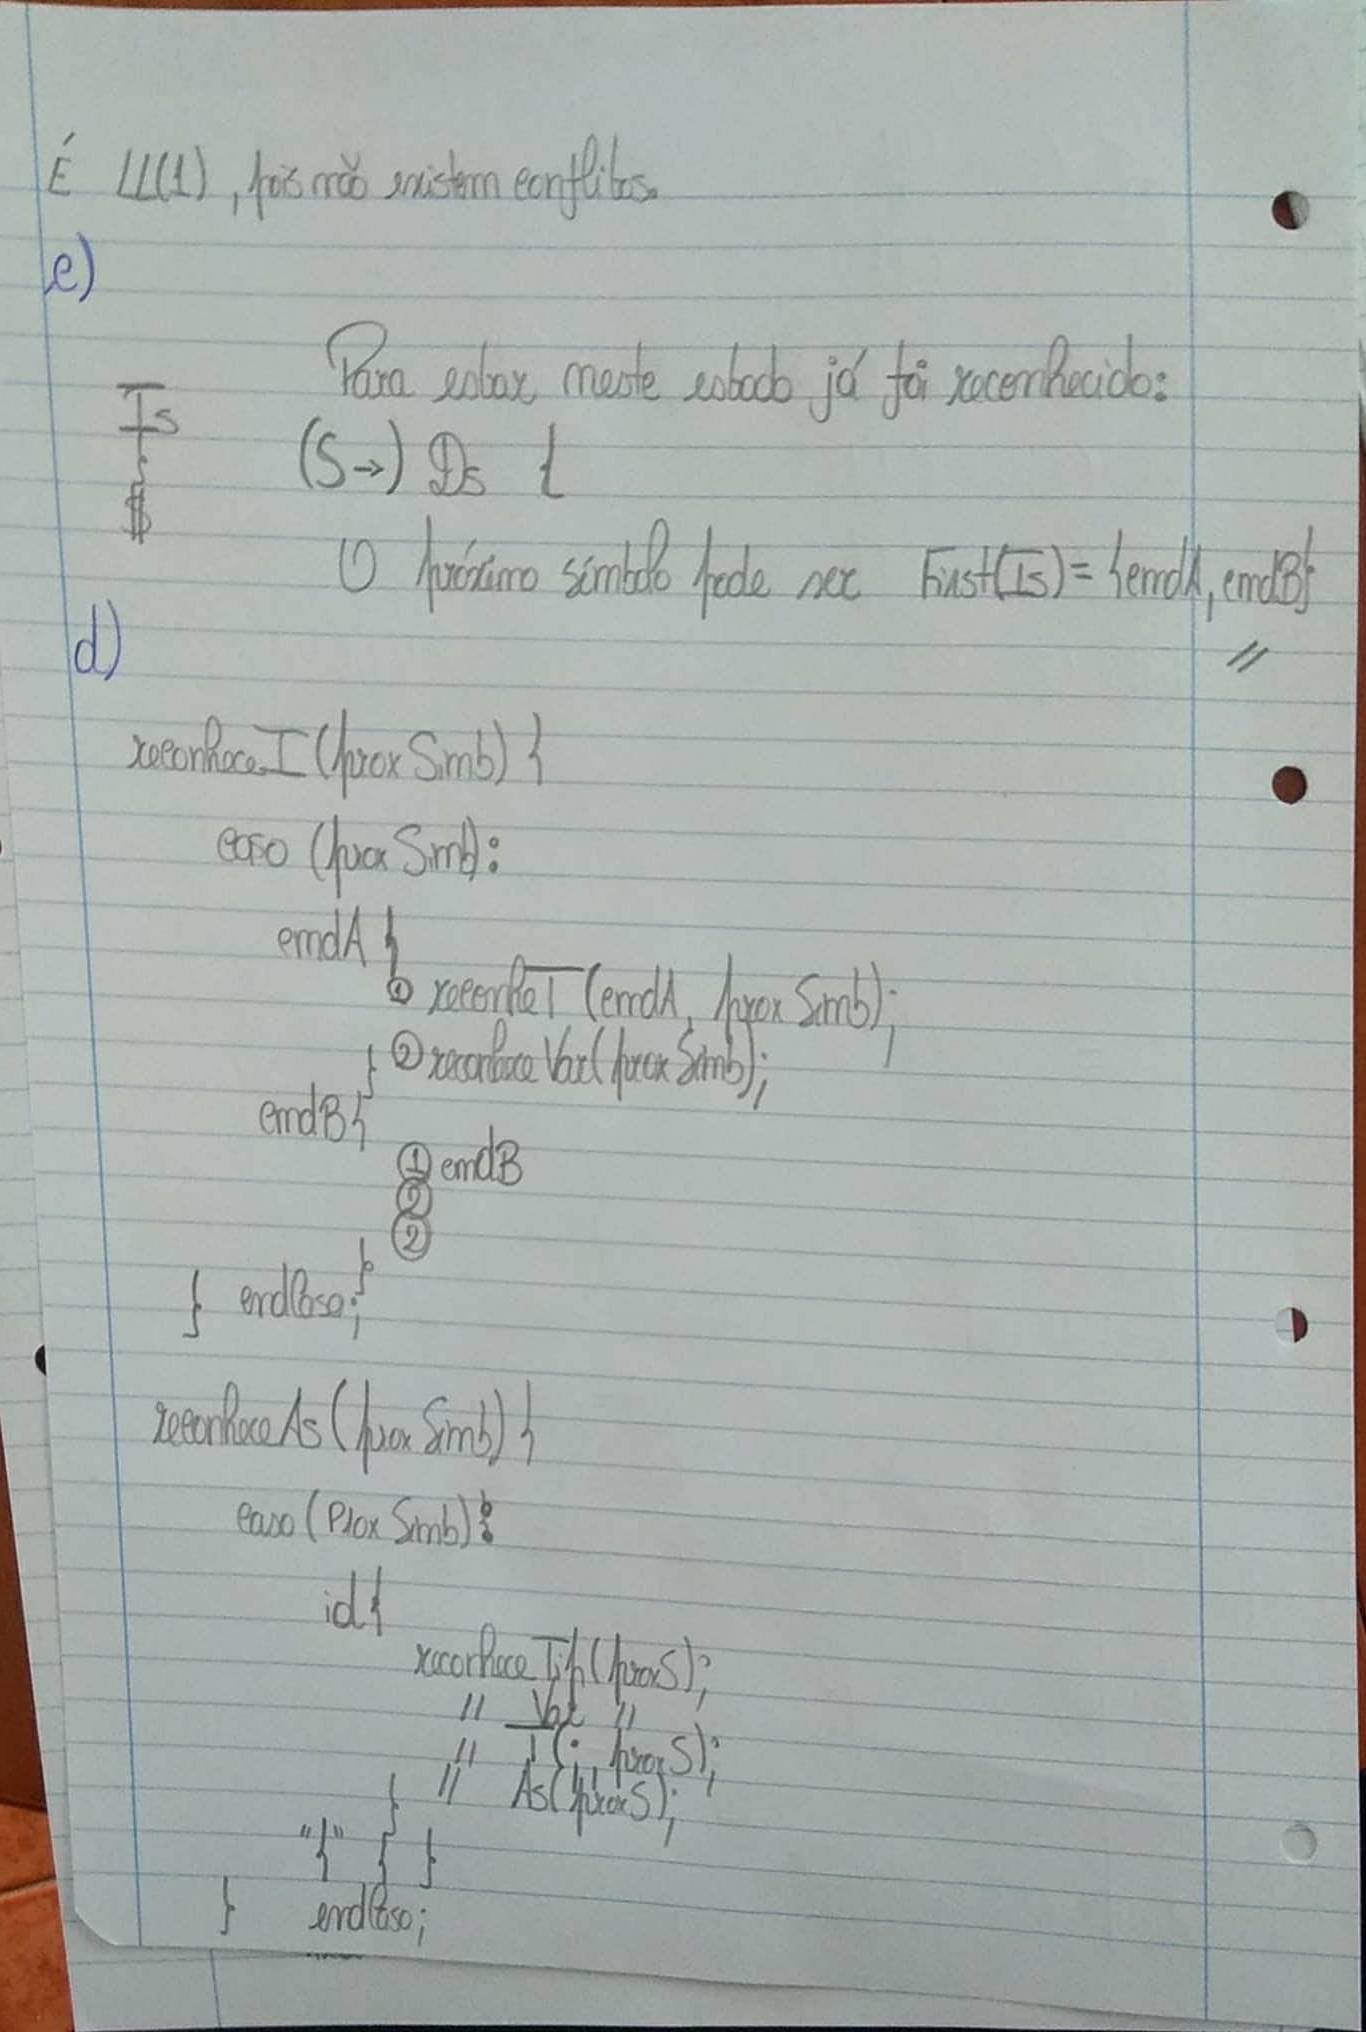 É LL(1), pois não existem conflitos.
c)
Para estar neste estado já foi reconhecido:
Is
}
$
(S→) Ds {
O próximo símbolo pode ser First(Is) = {cmdA, cmdB}
//
d)
reconheceI (proxSimb) {
caso (proxSimb):
cmdA {
① reconheT (cmdA, proxSimb);
} ② reconheceVar(proxSimb);
cmdB {
① cmdB
②
②
}
} endCaso;
reconheceAs (proxSimb) {
caso (ProxSimb):
id {
reconhece Tip (proxS);
" Val "
" T(; proxS);
} " As(proxS);
"}" { }
} endCaso;